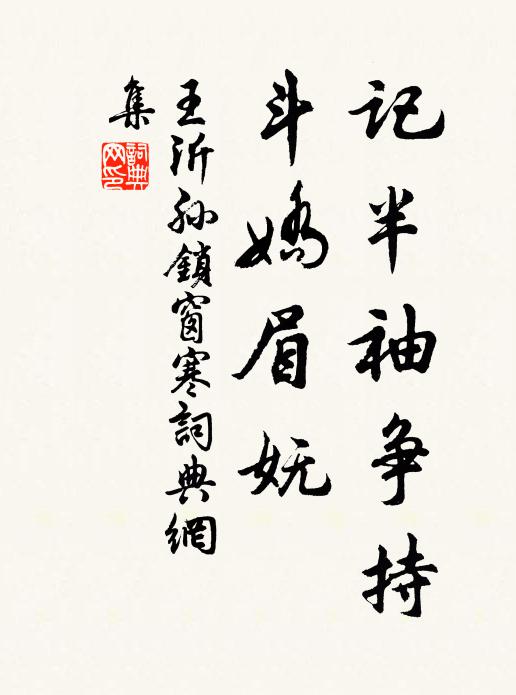 记半袖争持
斗嬌眉妩
王沂孙鎖窗寒詞典網
集
詞典
网印